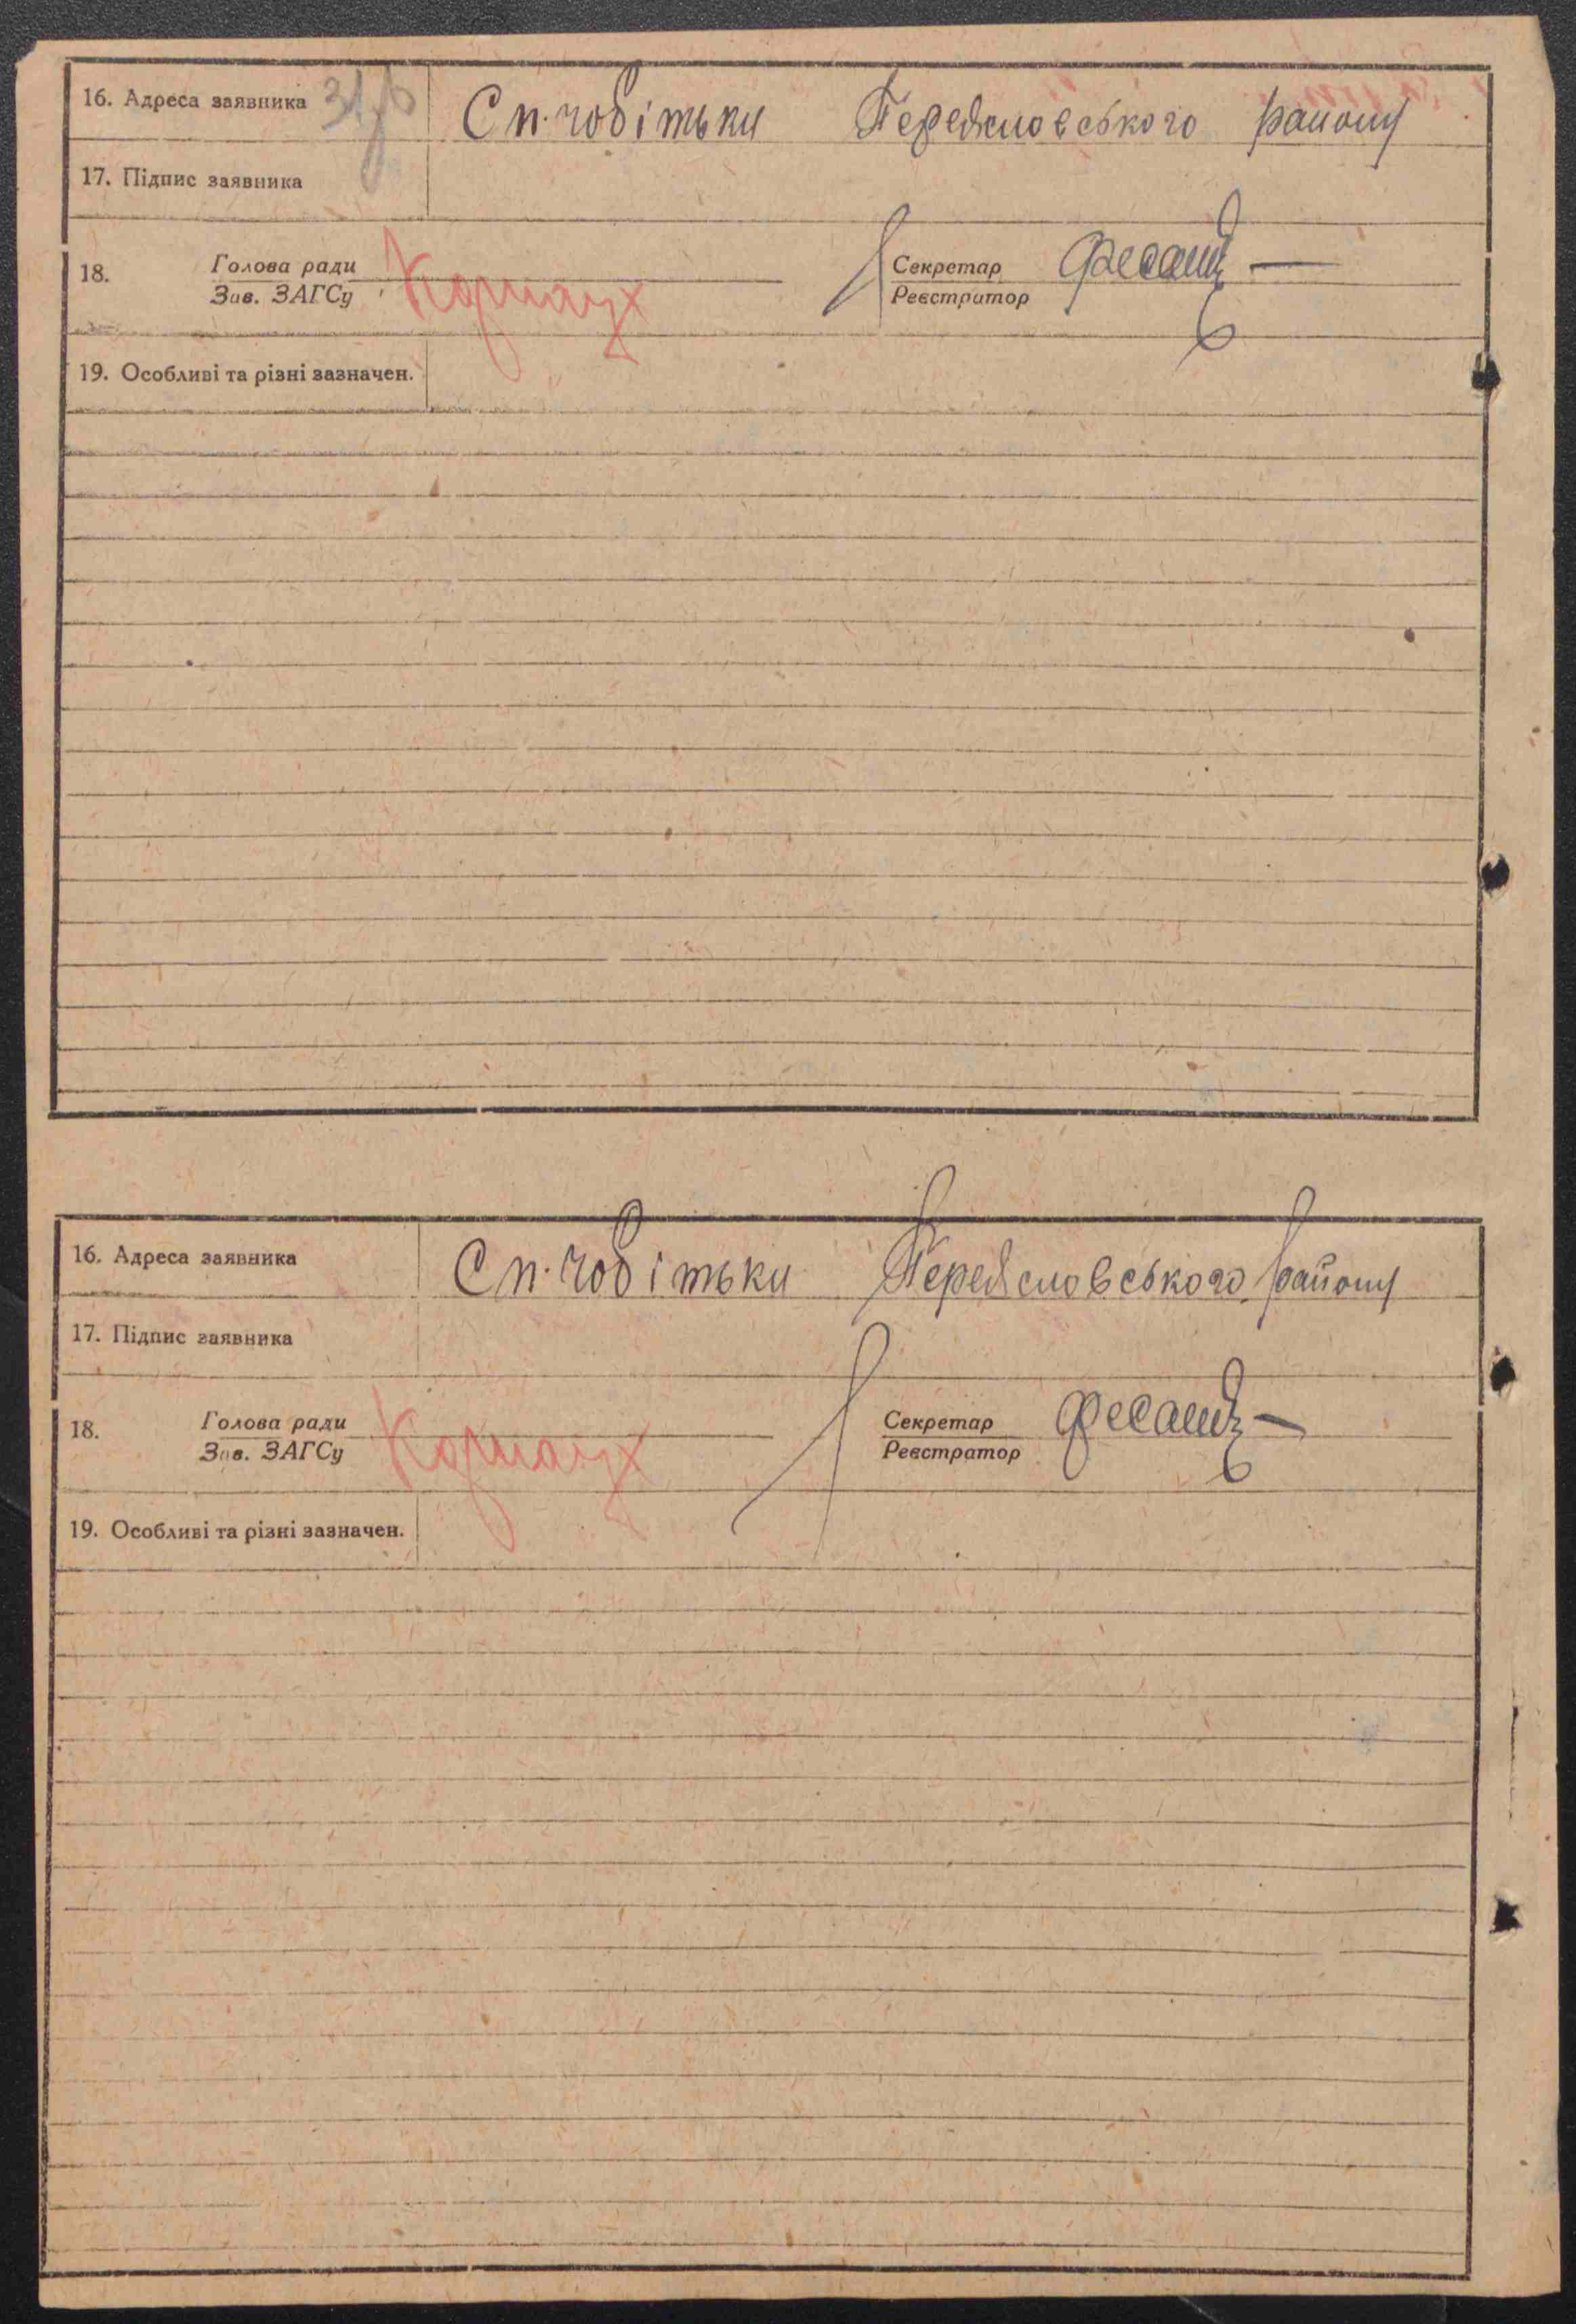 16. Адреса заявника Сп. Чобітьки Переясловського району
17. Підпис заявника
18. Голова ради Секретар
Зав. ЗАГСу Реєстратор
19. Особливі та різні зазначен.
16. Адреса заявника Сп. Чобітьки Переясловського району
17. Підпис заявника
18. Голова ради Секретар
Зав. ЗАГСу Реєстратор
19. Особливі та різні зазначен.